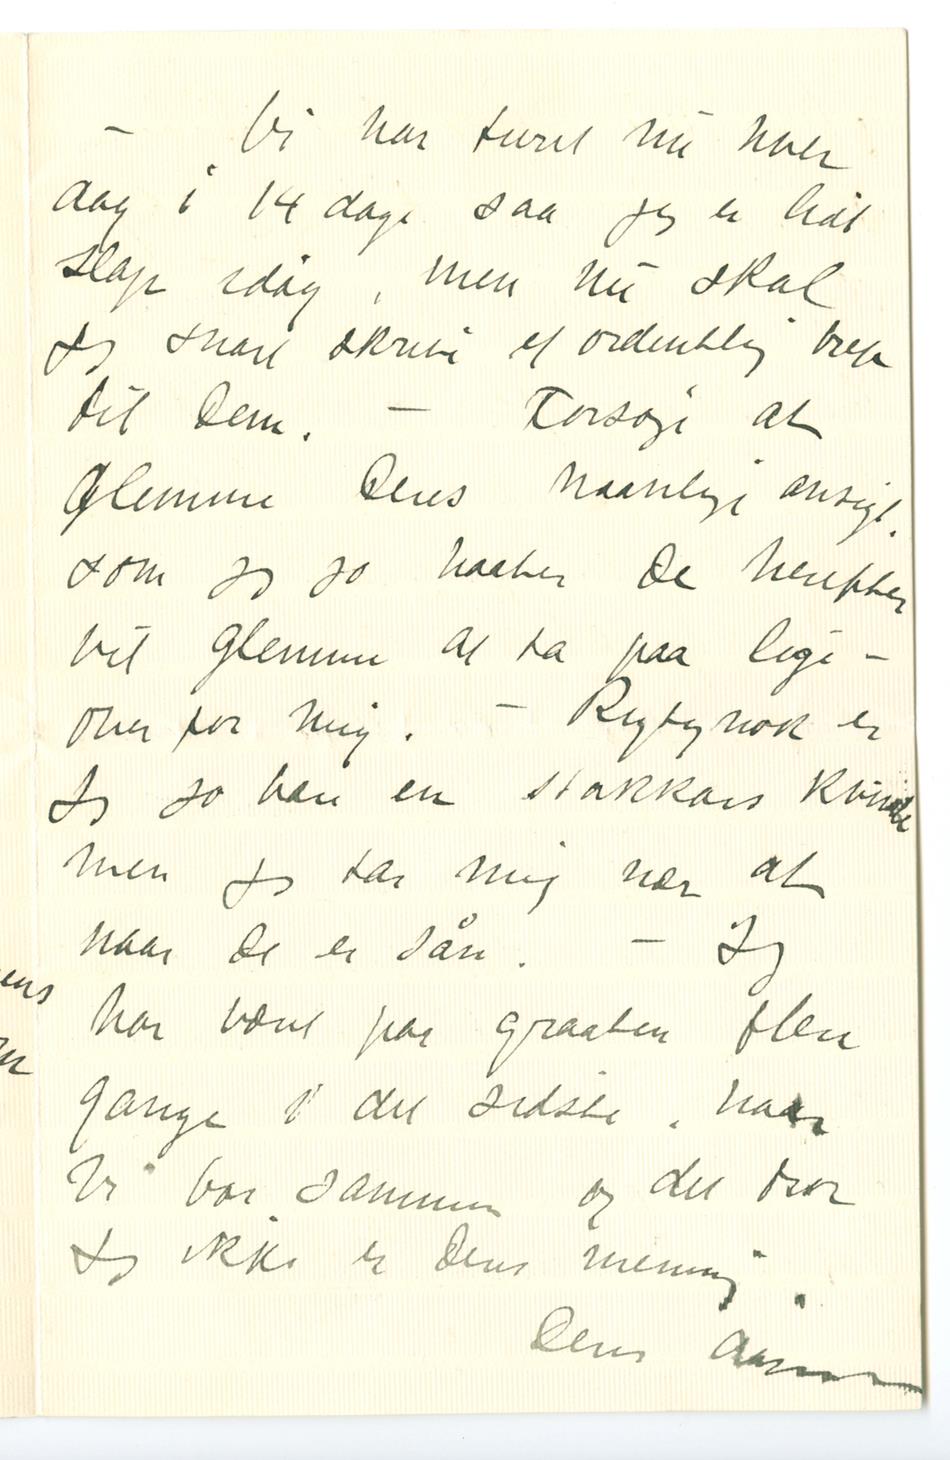 – Vi har turet nu hver
dag i 14 dage saa jeg er lidt
slap idag, men nu skal
jeg snart skrive et ordentlig brev
til Dem. – Forsøge at
glemme Deres haanlige ansigt,
som jeg jo haaber De herefter
vil glemme at ta paa lige-
over for mig. – nok er
jeg jo bare en stakkars kvinde
men jeg tar mig nær at
naar De er sån. – Jeg
har vært paa graaten flere
gange i det sidste, naar
vi var sammen og det tror
jeg ikke er Deres mening.
Deres
ens